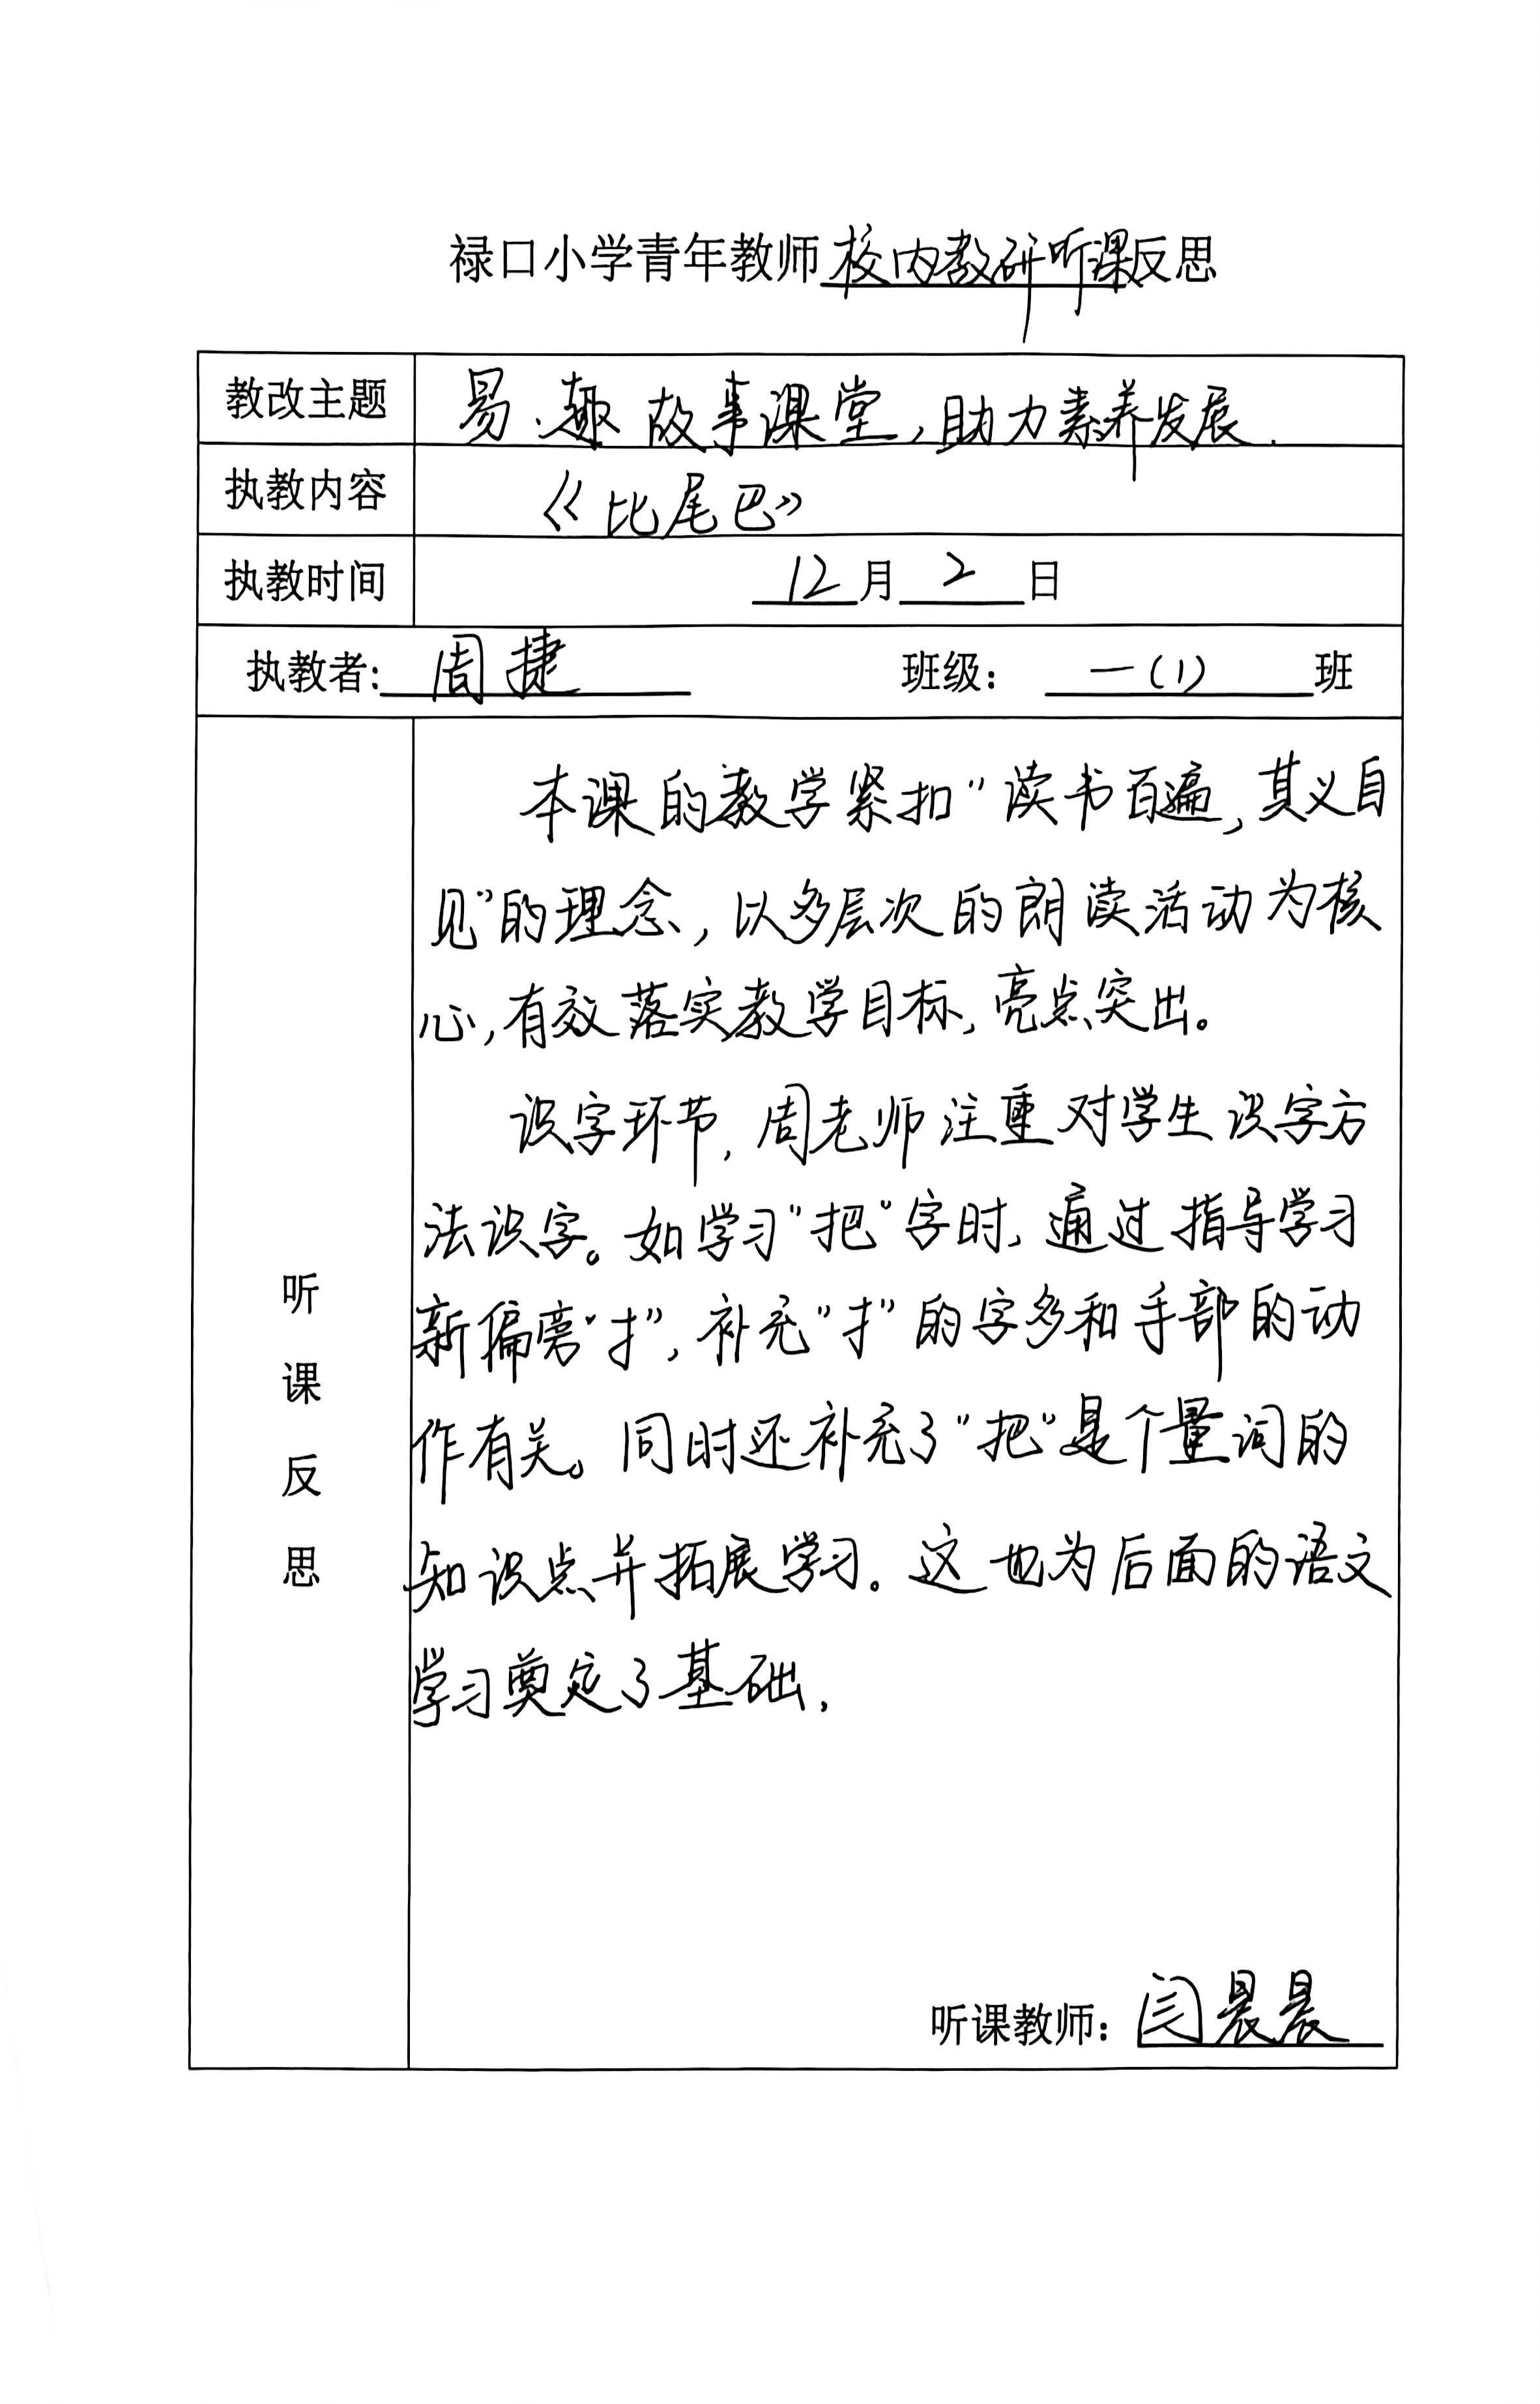 禄口小学青年教师校内教研听课反思
教改主题 易、趣故事课堂,助力素养发展.
执教内容 《比尾巴》
执教时间 12月2日
执教者:周捷 班级:一(1)班
听课反思
本课的教学紧扣"读书百遍,其义自
见"的理念,以多层次的朗读活动为核
心,有效落实教学目标,亮点突出。
识字环节,周老师注重对学生识字方
法识字。如学习"把"字时,通过指导学习
新偏旁"扌",补充"扌"的字多和手部的动
作有关。同时还补充了"把"是个量词的
知识点并拓展学习。这也为后面的语文
学习奠定了基础.
听课教师:闫晨晨